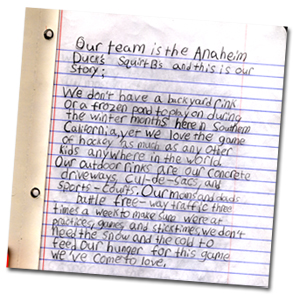 Our team is the Anaheim
Ducks Squirt B's and this is our
story:
We don't have a backyard rink
or a frozen pond to play on during
the winter months here in Southern
California, yet we love the game
of hockey as much as any other
kids anywhere in the world.
Our outdoor rinks are our concrete
driveways, cul-de-sacs, and
sports-courts. Our moms and dads
battle free-way traffic three
times a week to make sure were at
practices, games, and sticktimes. we don't
need the snow and the cold to
feed our hunger for this game
we've come to love.